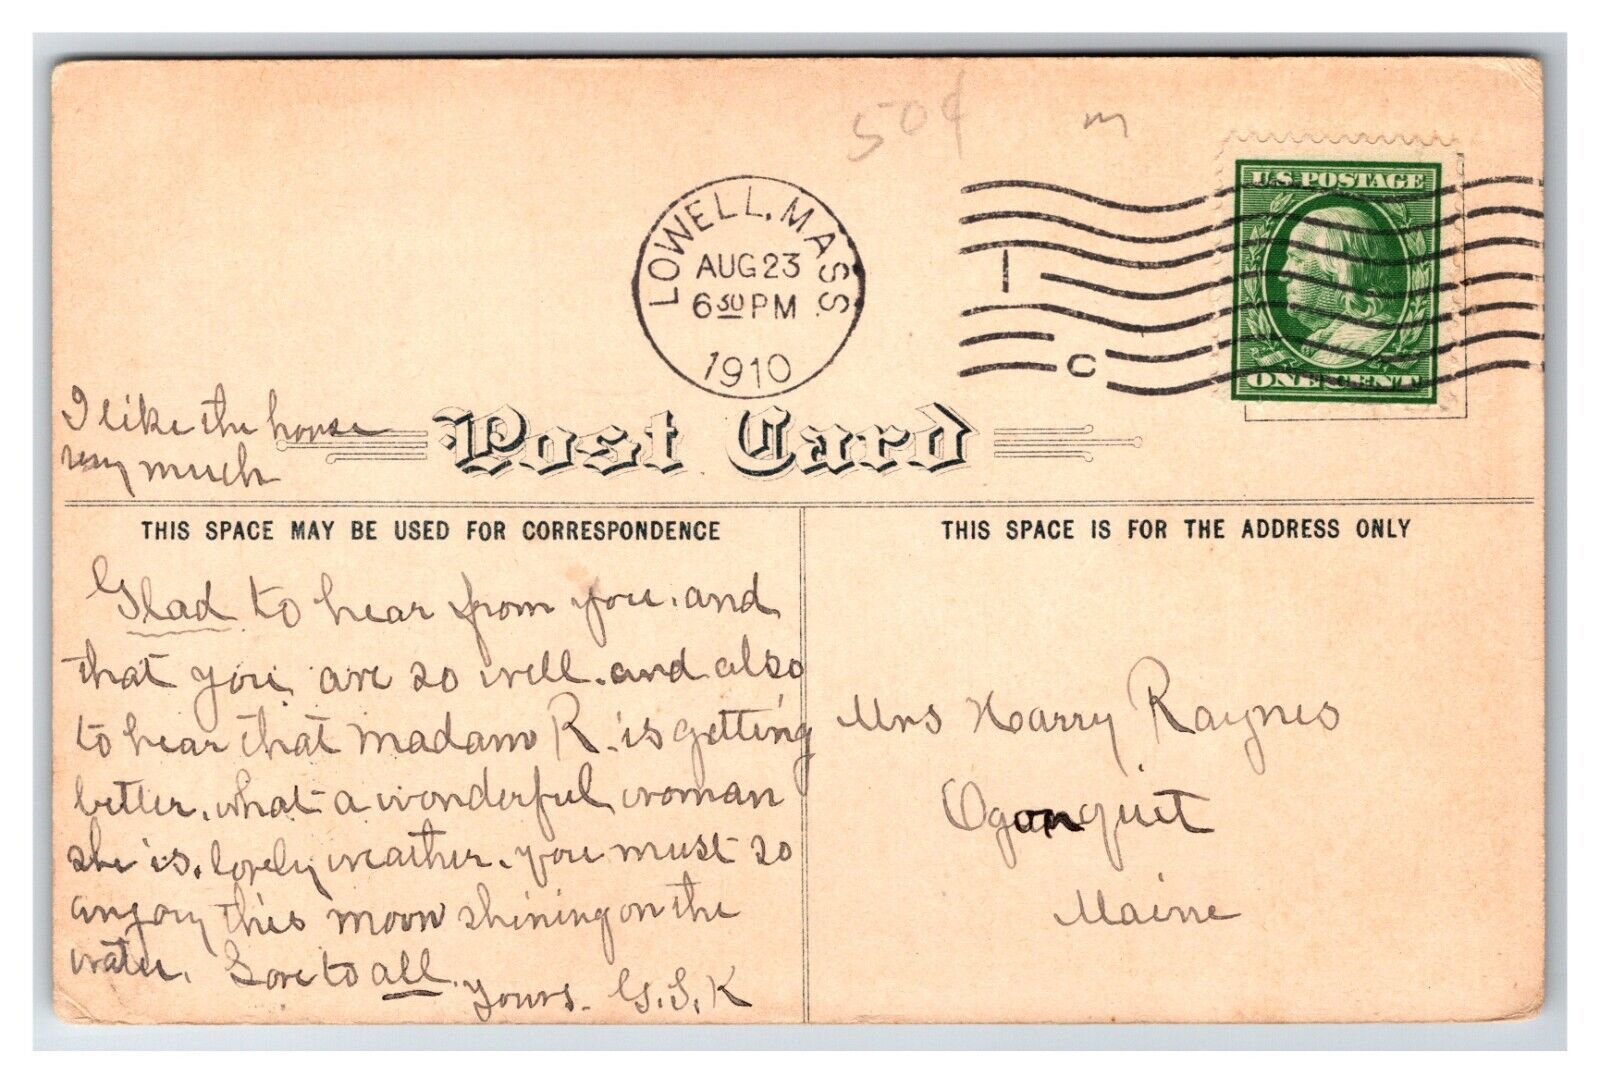 50¢ m
U.S. POSTAGE
LOWELL, MASS.
AUG 23
6 30 PM
1910
1
C
ONE CENT
I like the house
very much
Post Card
THIS SPACE MAY BE USED FOR CORRESPONDENCE
THIS SPACE IS FOR THE ADDRESS ONLY
Glad to hear from you. and
that you are so well. and also
to hear that Madam R. is getting
better. what a wonderful woman
she is. lovely weather. you must so
enjoy this moon shining on the
water. Love to all.
Yours. G.S.K
Mrs Harry Raynes
Ogunquit
Maine